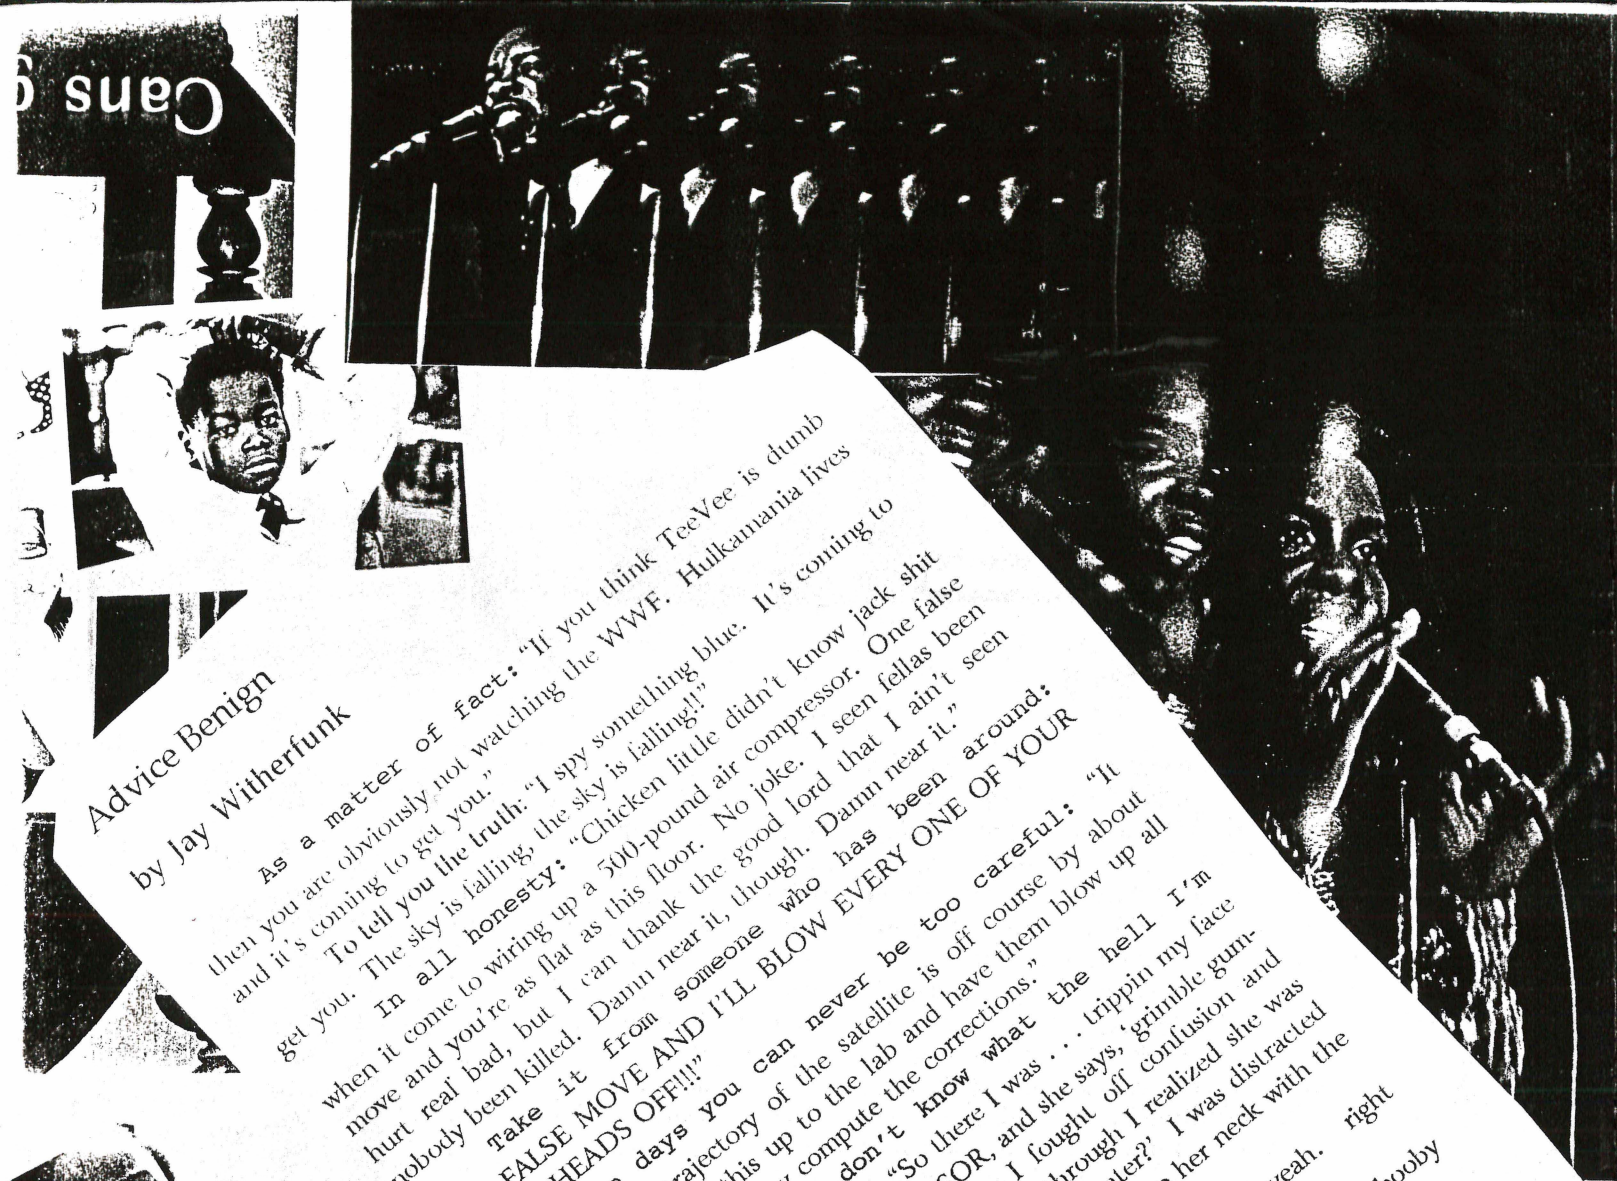 Cans g
Advice Benign
by Jay Witherfunk
As a matter of fact: "If you think TeeVee is dumb
then you are obviously not watching the WWF. Hulkamania lives
and it's coming to get you."
To tell you the truth: "I spy something blue. It's coming to
get you. The sky is falling, the sky is falling!!"
In all honesty: "Chicken little didn't know jack shit
when it come to wiring up a 500-pound air compressor. One false
move and you're as flat as this floor. No joke. I seen fellas been
hurt real bad, but I can thank the good lord that I ain't seen
nobody been killed. Damn near it, though. Damn near it."
Take it from someone who has been around:
FALSE MOVE AND I'LL BLOW EVERY ONE OF YOUR
HEADS OFF!!!"
days you can never be too careful: "It
rajectory of the satellite is off course by about
this up to the lab and have them blow up all
compute the corrections."
don't know what the hell I'm
"So there I was . . . trippin my face
OR, and she says, 'grimble gum-
I fought off confusion and
hrough I realized she was
ter?' I was distracted
her neck with the
yeah. right
hooby